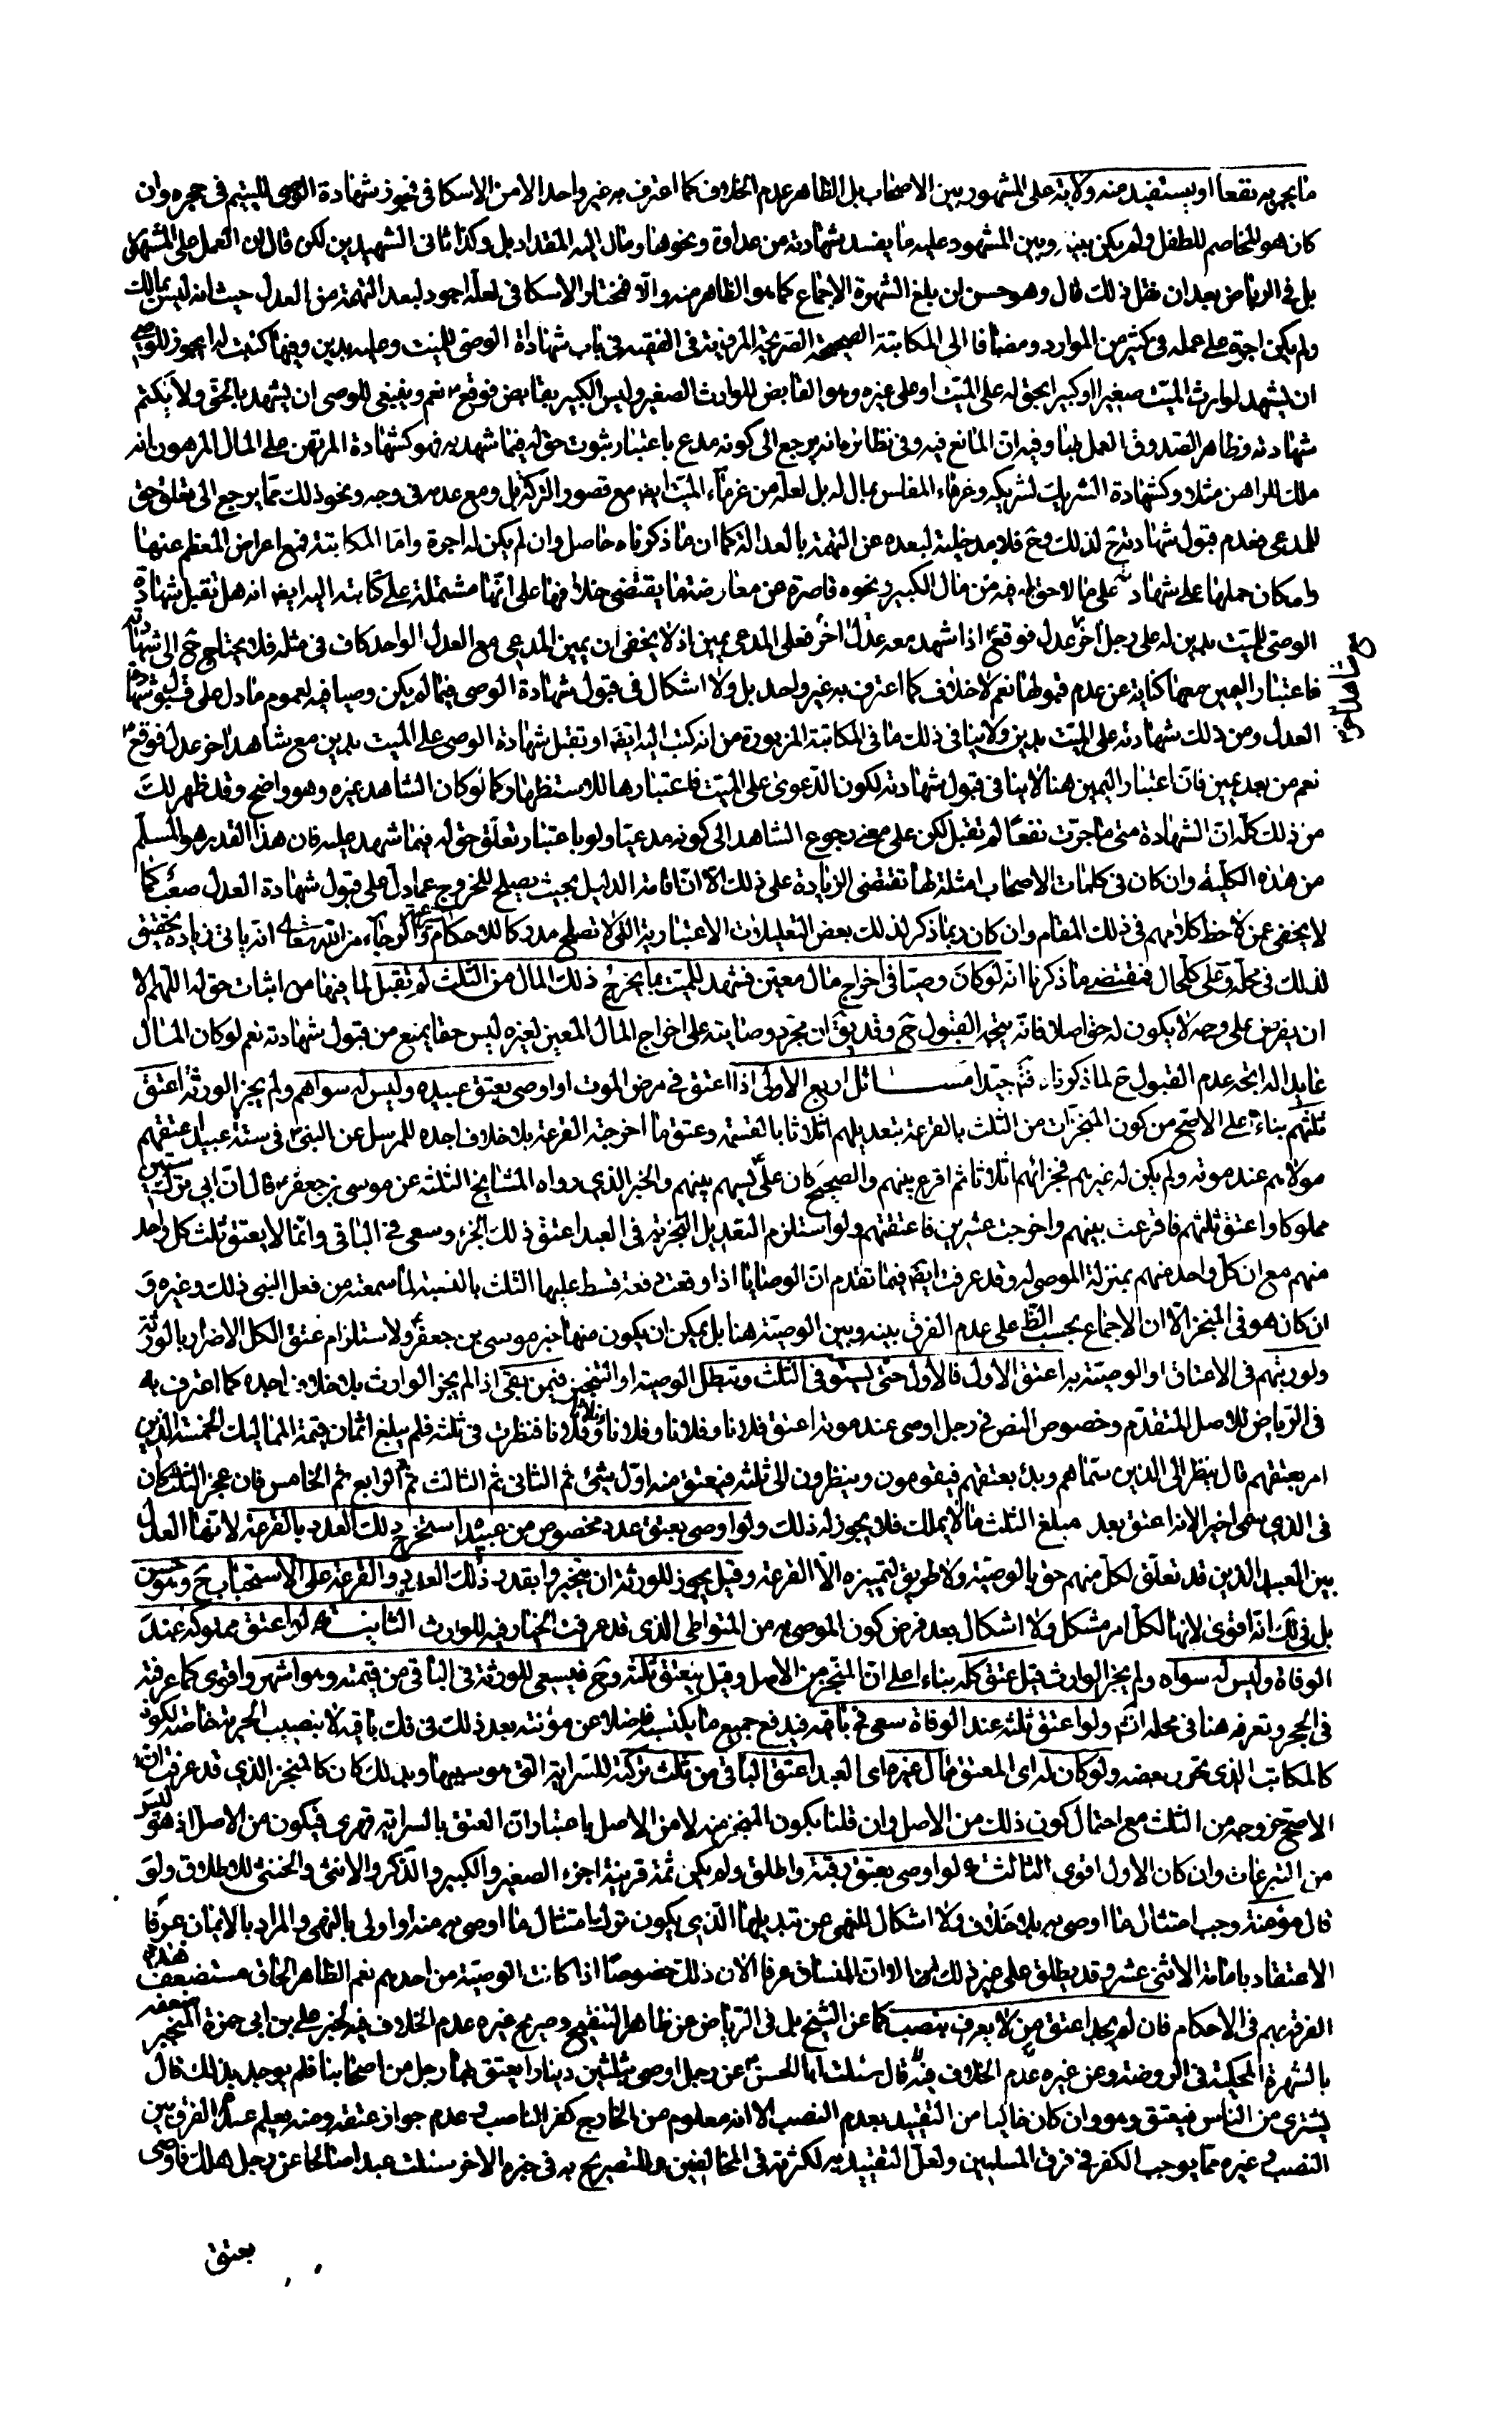 ما يجر به نفعا او يستفيد منه ولاية على المشهور بين الاصحاب بل الظاهر عدم الخلاف كما اعترف به غير واحد الا من الاسكافى فجوز شهادة الوصى لليتيم فى حجره وان
كان هو المخاصم للطفل ولم يكن بينه وبين المشهود عليه ما يفسد شهادته من عداوة ونحوها ومال اليه المقداد بل وكذا ثانى الشهيدين لكن قال ان العمل على المشهور
بل فى الرياض بعد ان نقل ذلك قال وهو حسن لن بلغ الشهرة الاجماع كما هو الظاهر منه والا فمختار الاسكافى لعله اجود لبعد التهمة من العدل حيث انه ليس بمالك
ولم يكن اجرة على عمله فى كثير من الموارد ومضافا الى المكاتبة الصحيحة الصريحة المروية فى الفقيه فى باب شهادة الوصى للميت وعليه بدين وفيها كتبت له ايجوز للوصى
ان يشهد لوارث الميت صغيرا او كبيرا بحق له على الميت او على غيره وهو القابض للوارث الصغير وليس الكبير بقابض فوقع ع نعم وينبغى للوصى ان يشهد بالحق ولا يكتم
شهادته وظاهر الصدوق العمل بها وفيه ان المانع فيه وفى نظائره انه يرجع الى كونه مدع باعتبار ثبوت حق له فيما شهد به فهو كشهادة المرتهن على المال المرهون انه
ملك للراهن مثلا وكشهادة الشريك لشريكه وغرماء المفلس بمال له بل لعله من غرماء الميت ايض مع قصور التركة بل ومع عدمه فى وجه ونحو ذلك مما يرجع الى تعلق حق
للمدعى فعدم قبول شهادته ح لذلك وح فلا مدخلية لبعده عن التهمة بالعدالة كما ان ما ذكرناه حاصل وان لم يكن له اجرة واما المكاتبة فمع اعراض المعظم عنها
وامكان حملها على شهادته على ما لا حق له فيه من مال الكبير ونحوه قاصرة عن معارضتها يقتضى خلافها على انها مشتملة على كتابته اليه ايض انه هل تقبل شهادة
الوصى للميت بدين له على رجل اخر عدل فوقع ع اذا شهد معه عدل اخر فعلى المدعى يمين اذ لا يخفى ان يمين المدعى مع العدل الواحد كاف فى مثله فلا يحتاج ح الى شهادته
فاعتبار اليمين معها كناية عن عدم قبولها نعم لا خلاف كما اعترف به غير واحد بل ولا اشكال فى قبول شهادة الوصى فيما لم يكن وصيا فيه لعموم ما دل على قبول شهادة
العدل ومن ذلك شهادته على الميت بدين ولا ينافى ذلك ما فى المكاتبة المزبورة من انه كتب اليه ايضا او تقبل شهادة الوصى على الميت بدين مع شاهد اخر عدل فوقع ع
نعم من بعد يمين فان اعتبار اليمين هنا لا ينافى قبول شهادته لكون الدعوى على الميت فاعتبارها للاستظهار كما لو كان الشاهد غيره وهو واضح وقد ظهر لك
من ذلك كله ان الشهادة متى ما جرت نفعا لم تقبل لكن على معنى رجوع الشاهد الى كونه مدعيا ولو باعتبار تعلق حق له فيما شهد عليه فان هذا القدر هو المسلم
من هذه الكلية وان كان فى كلمات الاصحاب امثلة لها تقتضى الزيادة على ذلك الا ان اقامة الدليل بحيث يصلح للخروج عما دل على قبول شهادة العدل صعب كما
لا يخفى عن لاحظ كلامهم فى ذلك المقام وان كان ربما ذكر لذلك بعض التعليلات الاعتبارية التى لا تصلح مدركا للاحكام الشرعية والرجاء من الله تعالى انه ياتى زيادة تحقيق
لذلك فى محله وعلى كل حال فمقتضى ما ذكرنا انه لو كان وصيا فى اخراج مال معين فشهد للميت بما يخرج ذلك المال من الثلث لم تقبل لما فيها من اثبات حق له اللهم الا
ان يفرض على وجه لا يكون له حق اصلا فانه يتجه القبول ح وقد يق ان مجرد وصايته على اخراج المال المعين لغيره ليس حقا يمنع من قبول شهادته نعم لو كان المال
عايدا له اتجه عدم القبول ح لما ذكرناه فتم جيدا مسائل اربع الاولى اذا اعتق فى مرض الموت او اوصى بعتق عبيده وليس له سواهم ولم يجز الورثة اعتق
ثلثهم بناء على الاصح من كون المنجزات من الثلث بالقرعة بتعديلهم اثلاثا بالقسمة وعتق ما اخرجته القرعة بلا خلاف اجده للمرسل عن النبى ص فى ستة عبيد اعتقهم
مولاهم عند موته ولم يكن له غيرهم فجزاهم اثلاثا ثم اقرع بينهم والصحيح كان على ع يسهم بينهم والخبر الذى رواه المشايخ الثلثة عن موسى بن جعفر ع قال ان ابى ترك ستين
مملوكا واعتق ثلثهم فاقرعت بينهم واخرجت عشرين فاعتقتهم ولو استلزم التعديل التجزية فى العبد اعتق ذلك الجزء وسعى فى الباقى وانما لا يعتق ثلث كل واحد
منهم مع ان كل واحد منهم بمنزلة الموصى له وقد عرفت ايض فيما تقدم ان الوصايا اذا وقعت دفعة قسط عليها الثلث بالنسبة لما سمعته من فعل النبى ذلك وغيره و
ان كان هو فى المنجز الا ان الاجماع بحسب الظ على عدم الفرق بينه وبين الوصية هنا بل يمكن ان يكون منها خبر موسى بن جعفر ع ولاستلزام عتق الكل الاضرار بالورثة
ولو رتبهم فى الاعتاق او الوصية به اعتق الاول فالاول حتى يستوفى الثلث وتبطل الوصية او التنجيز فيمن بقى اذا لم يجز الوارث بلا خلاف اجده كما اعترف به
فى الرياض للاصل المتقدم وخصوص النص فى رجل اوصى عند موته اعتق فلانا وفلانا وفلانا وفلانا وفلانا فنظرت فى ثلثه فلم يبلغ اثمان قيمة المماليك الخمسة الذين
امر بعتقهم قال ينظر الى الذين سماهم وبدء بعتقهم فيقومون وينظرون الى ثلثه فيعتق منه اول شئ ثم الثانى ثم الثالث ثم الرابع ثم الخامس فان عجز الثلث كان
فى الذى سمى اخيرا لانه اعتق بعد مبلغ الثلث ما لا يملك فلا يجوز له ذلك ولو اوصى بعتق عدد مخصوص من عبيده استخرج ذلك العدد بالقرعة لانها العدل
بين العبيد الذين قد تعلق لكل منهم حق بالوصية ولا طريق لتمييزه الا القرعة وقيل يجوز للورثة ان يتخيروا بقدر ذلك العدد والقرعة على الاستحباب ح وهو حسن
بل فى لك انه اقوى لانها لكل امر مشكل ولا اشكال بعد فرض كون الموصى به من المتواطى الذى قد عرفت الخيار فيه للوارث الثانية لو اعتق مملوكه عند
الوفاة وليس له سواه ولم يجز الوارث قيل عتق كله بناء على ان المنجز من الاصل وقيل ينعتق ثلثه وح فيسعى للورثة فى الباقى من قيمته وهو اشهر واقوى كما عرفته
فى الحجر وتعرفه هنا فى محله انش ولو اعتق ثلثه عند الوفاة سعى فى باقيه فيدفع جميع ما يكتسبه فاضلا عن مؤنته بعد ذلك فى فك باقيه لا بنصيب الحرية خاصة لكونه
كالمكاتب الذى تحرر بعضه ولو كان له اى المعتق مال غيره اى العبد اعتق الباقى من ثلث تركته للسراية التى هو سببها وبذلك كان كالمنجز الذى قد عرفت ان
الاصح خروجه من الثلث مع احتمال كون ذلك من الاصل وان قلنا بكون المنجز منه لا من الاصل باعتبار ان العتق بالسراية قهرى فيكون من الاصل اذ هو ليس
من التبرعات وان كان الاول اقوى الثالثة لو اوصى بعتق رقبة واطلق ولم يكن ثمة قرينة اجزء الصغير والكبير والذكر والانثى والخنثى للاطلاق ولو
قال مؤمنة وجب امتثال ما اوصى به بلا خلاف ولا اشكال للنهى عن تبديلها الذى يكون ترك امتثال ما اوصى به منه او اولى بالنهى والمراد بالايمان عرفا
الاعتقاد بامامة الاثنى عشر وقد يطلق على غير ذلك ايضا الا ان المنساق عرفا الان ذلك خصوصا اذا كانت الوصية من احدهم نعم الظاهر الحاق مستضعف هذه
الفرقة بهم فى الاحكام فان لم يجد اعتق من لا يعرف بنصب كما عن الشيخ بل فى الرياض عن ظاهر التنقيح وصريح غيره عدم الخلاف فيه لخبر على بن ابى حمزة المنجبر ضعفه
بالشهرة المحكية فى الروضة وعن غيره عدم الخلاف فيه قال سئلت ابا الحسن ع عن رجل اوصى بثلثين دينارا يعتق بها رجل من اصحابنا فلم يوجد بذلك قال
يشترى من الناس فيعتق وهو وان كان خاليا من التقييد بعدم النصب الا انه معلوم من الخارج كفر الناصب وعدم جواز عتقه ومنه يعلم عدم الفرق بين
النصب وغيره مما يوجب الكفر فى فرق المسلمين ولعل التقييد به لكثرته فى المخالفين وللتصريح به فى خبره الاخر سئلت عبدا صالحا عن رجل هلك فاوصى
بعتق